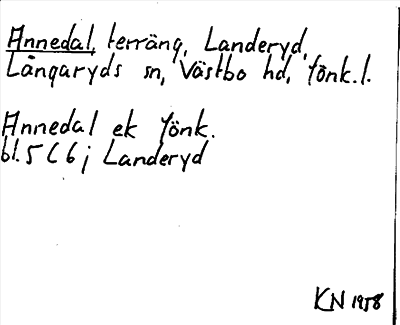 Annedal, terräng, Landeryd,
Långaryds sn, Västbo hd, Jönk.l.
Annedal ek Jönk.
bl. 5 C 6 j Landeryd
KN 1958